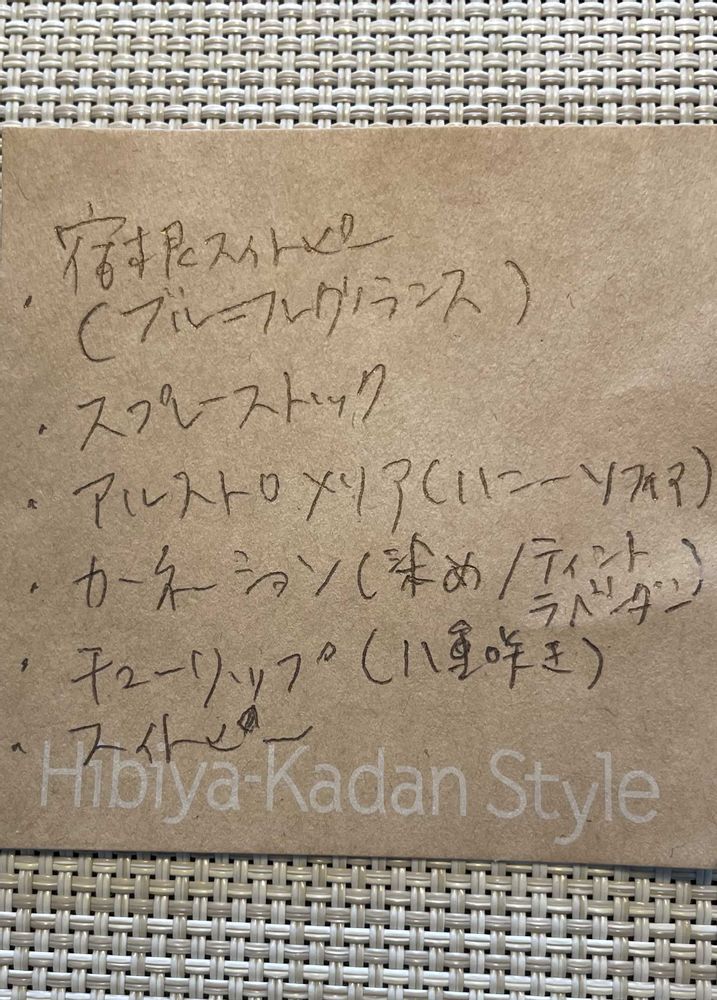 宿根スイトピー
・(ブルーフレグランス)
・スプレーストック
・アルストロメリア(ハニーソフィア)
・カーネーション(染め/ティント
ラベンダー)
・チューリップ(八重咲き)
・スイトピー
Hibiya-Kadan Style